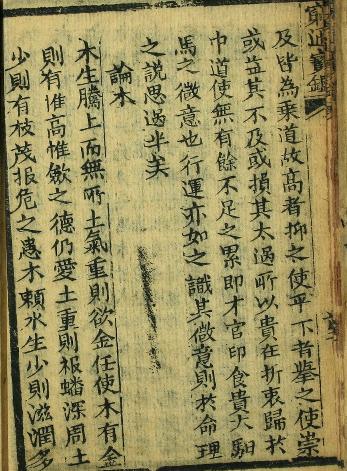 窮通寶鑑
及皆為乗道故高者抑之使平下者舉之使崇
或益其不及或損其太過所以貴在折衷歸於
中道使無有餘不足之累即才官印食貴大馹
馬之微意也行運亦如之識其微意則於命理
之説思過半矣
論木
木生騰上而無所止氣重則欲金任使木有金
則有惟高惟斂之德仍愛土重則根蟠深周土
少則有枝茂根危之患木頼水生少則滋潤多